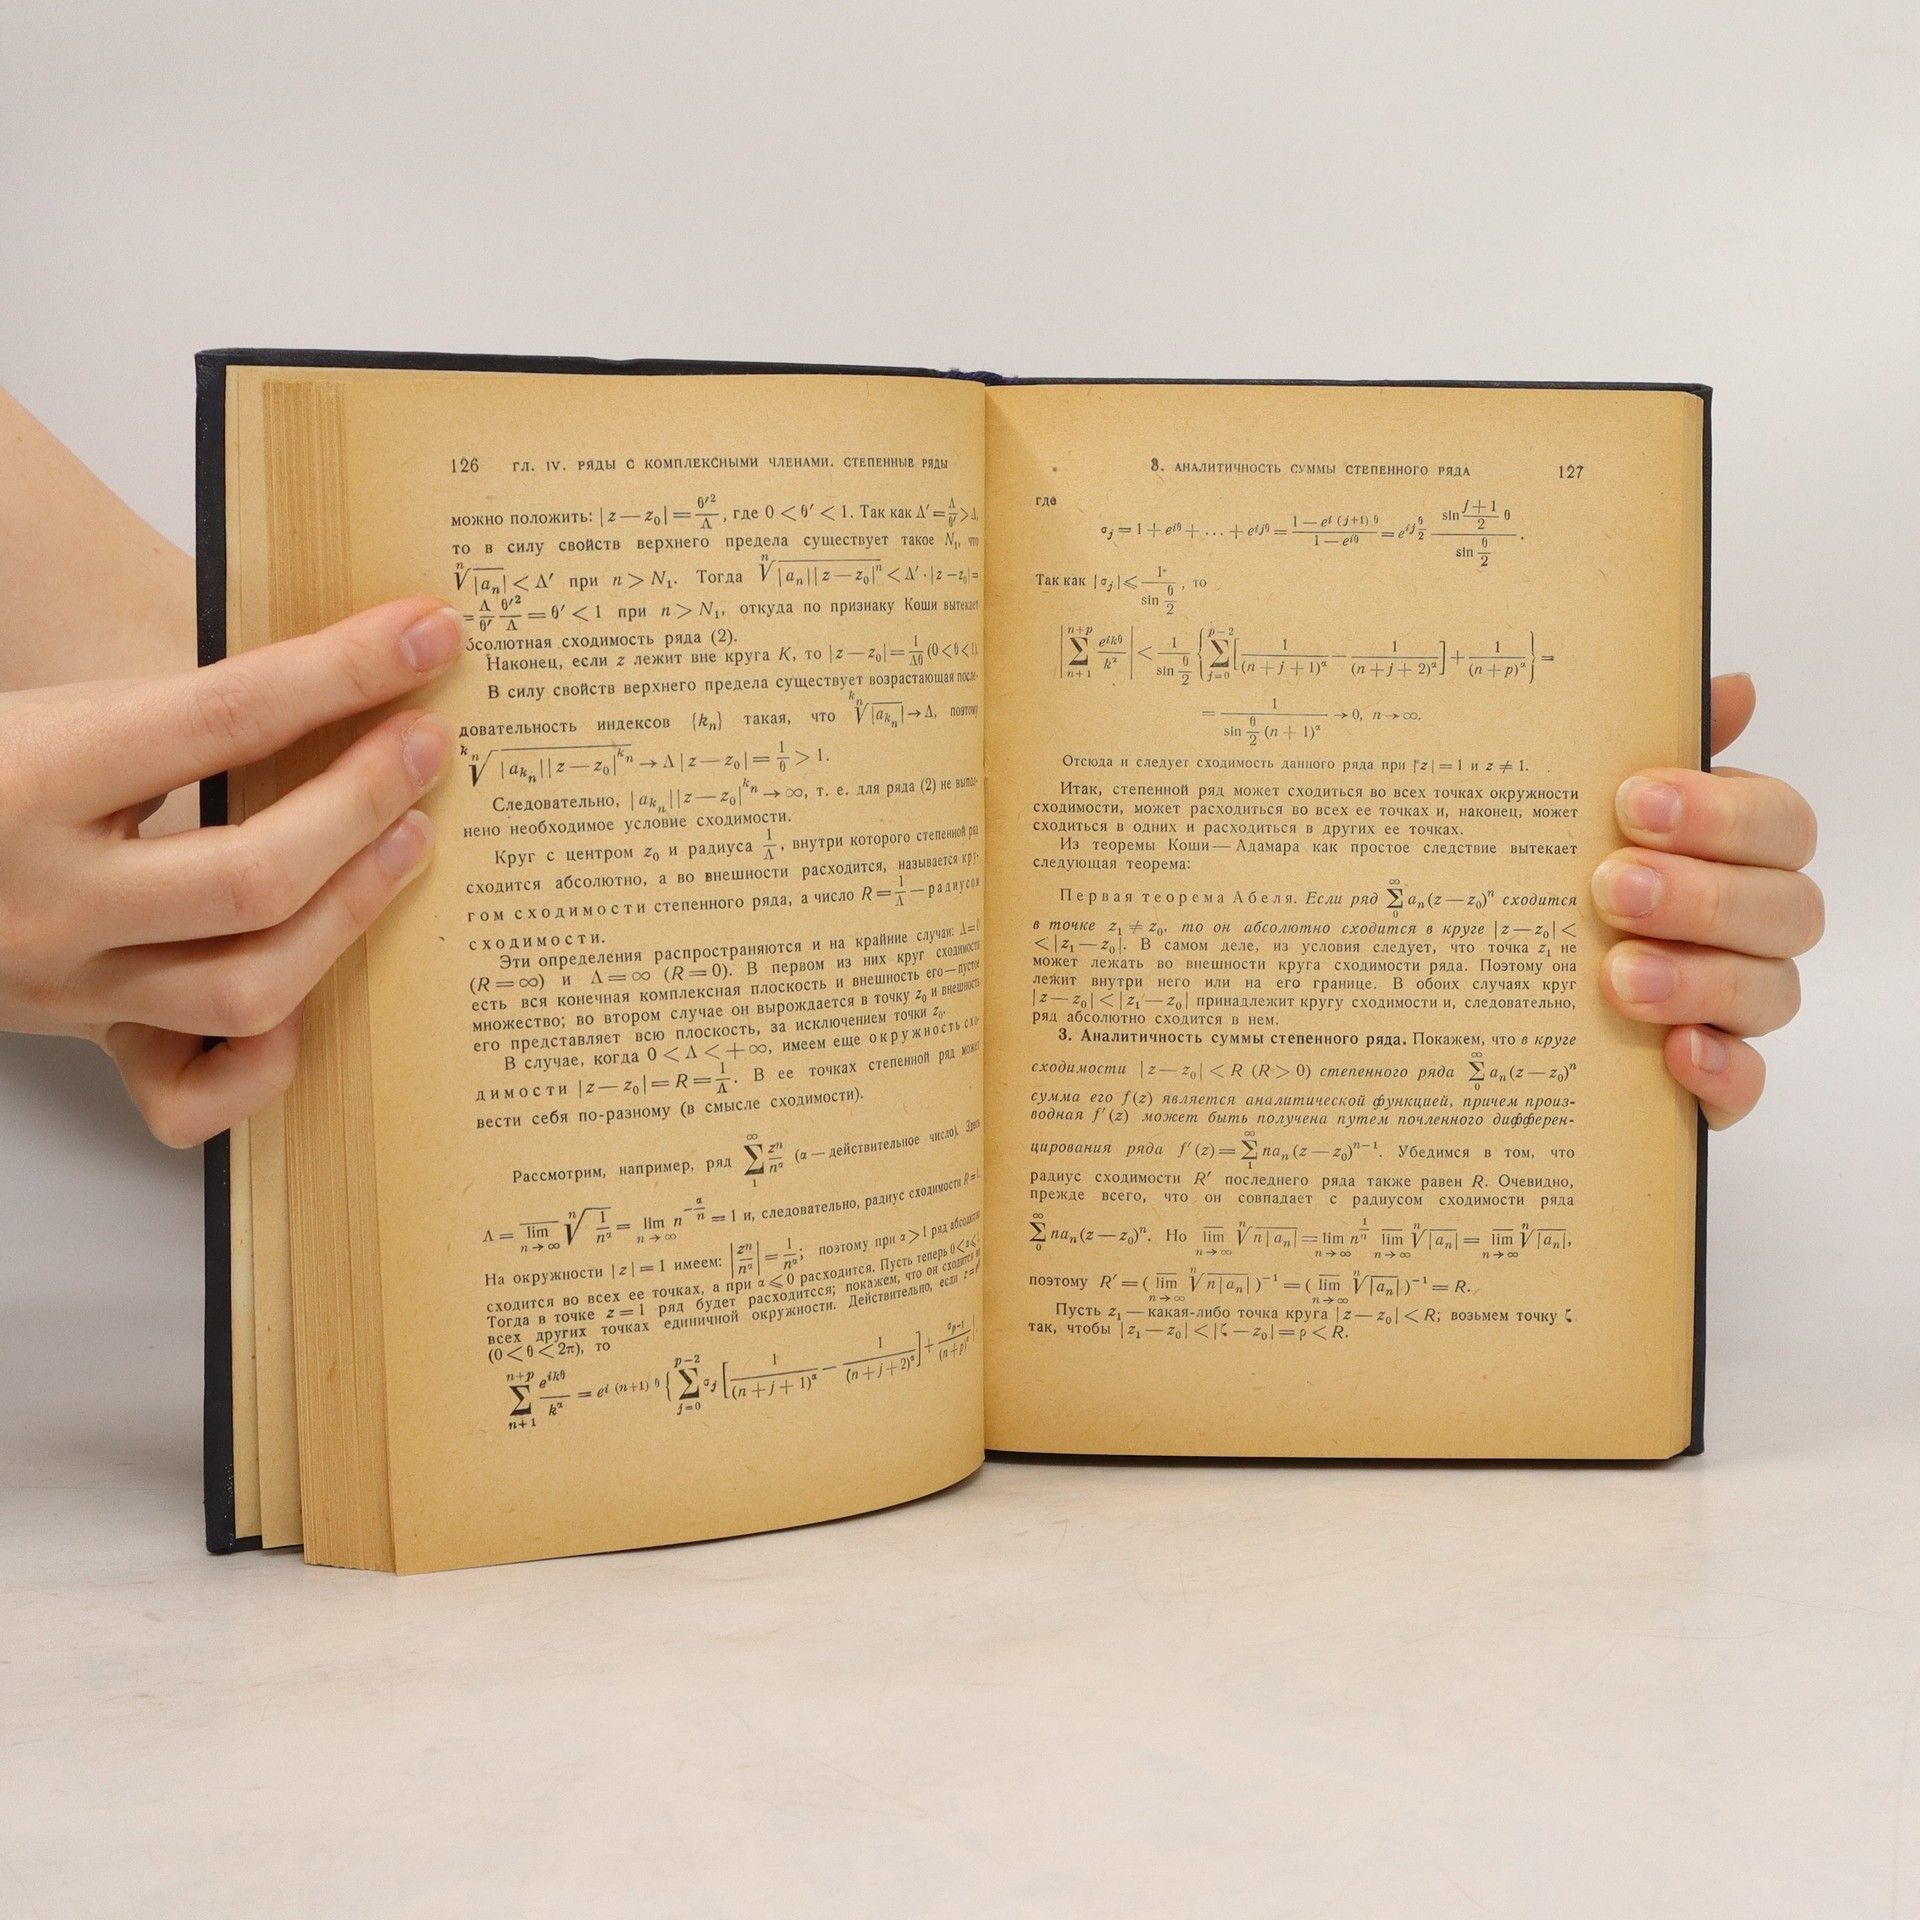 126 ГЛ. IV. РЯДЫ С КОМПЛЕКСНЫМИ ЧЛЕНАМИ. СТЕПЕННЫЕ РЯДЫ
можно положить: |z — z₀| = θ′²/Λ, где 0 < θ′ < 1. Так как Λ′ = Λ/θ′ > Λ,
то в силу свойств верхнего предела существует такое N₁, что
ⁿ√|aₙ| < Λ′ при n > N₁. Тогда ⁿ√|aₙ||z — z₀|ⁿ < Λ′·|z — z₀| =
= Λ/θ′ θ′²/Λ = θ′ < 1 при n > N₁, откуда по признаку Коши вытекает
абсолютная сходимость ряда (2).
Наконец, если z лежит вне круга K, то |z — z₀| = 1/Λθ (0 < θ < 1).
В силу свойств верхнего предела существует возрастающая после-
довательность индексов {kₙ} такая, что ᵏⁿ√|a_kₙ| → Λ, поэтому
ᵏⁿ√|a_kₙ||z — z₀|^kₙ → Λ|z — z₀| = 1/θ > 1.
Следовательно, |a_kₙ||z — z₀|^kₙ → ∞, т. е. для ряда (2) не выпол-
нено необходимое условие сходимости.
Круг с центром z₀ и радиуса 1/Λ, внутри которого степенной ряд
сходится абсолютно, а во внешности расходится, называется кру-
гом сходимости степенного ряда, а число R = 1/Λ — радиусом
сходимости.
Эти определения распространяются и на крайние случаи: Λ = 0
(R = ∞) и Λ = ∞ (R = 0). В первом из них круг сходимости
есть вся конечная комплексная плоскость и внешность его — пустое
множество; во втором случае он вырождается в точку z₀ и внешность
его представляет всю плоскость, за исключением точки z₀.
В случае, когда 0 < Λ < +∞, имеем еще окружность схо-
димости |z — z₀| = R = 1/Λ. В ее точках степенной ряд может
вести себя по-разному (в смысле сходимости).
Рассмотрим, например, ряд ∑₁^∞ zⁿ/n^α (α — действительное число). Здесь
Λ = lim‾ n→∞ ⁿ√1/n^α = lim n→∞ n^(−α/n) = 1 и, следовательно, радиус сходимости R = 1.
На окружности |z| = 1 имеем: |zⁿ/n^α| = 1/n^α; поэтому при α > 1 ряд абсолютно
сходится во всех ее точках, а при α ⩽ 0 расходится. Пусть теперь 0 < α ⩽ 1.
Тогда в точке z = 1 ряд будет расходится; покажем, что он сходится во
всех других точках единичной окружности. Действительно, если z = e^iθ
(0 < θ < 2π), то
∑_{n+1}^{n+p} e^{ikθ}/k^α = e^{i(n+1)θ} {∑_{j=0}^{p−2} σ_j [1/(n+j+1)^α − 1/(n+j+2)^α] + σ_{p−1}/(n+p)^α
3. АНАЛИТИЧНОСТЬ СУММЫ СТЕПЕННОГО РЯДА 127
где
σ_j = 1 + e^{iθ} + ... + e^{ijθ} = (1 − e^{i(j+1)θ})/(1 − e^{iθ}) = e^{ijθ/2} (sin (j+1)/2 θ)/(sin θ/2).
Так как |σ_j| ⩽ 1/(sin θ/2), то
|∑_{n+1}^{n+p} e^{ikθ}/k^α| < 1/(sin θ/2) {∑_{j=0}^{p−2} [1/(n+j+1)^α − 1/(n+j+2)^α] + 1/(n+p)^α} =
= 1/(sin θ/2 (n+1)^α) → 0, n → ∞.
Отсюда и следует сходимость данного ряда при |z| = 1 и z ≠ 1.
Итак, степенной ряд может сходиться во всех точках окружности
сходимости, может расходиться во всех ее точках и, наконец, может
сходиться в одних и расходиться в других ее точках.
Из теоремы Коши — Адамара как простое следствие вытекает
следующая теорема:
Первая теорема Абеля. Если ряд ∑₀^∞ aₙ(z — z₀)ⁿ сходится
в точке z₁ ≠ z₀, то он абсолютно сходится в круге |z — z₀| <
< |z₁ — z₀|. В самом деле, из условия следует, что точка z₁ не
может лежать во внешности круга сходимости ряда. Поэтому она
лежит внутри него или на его границе. В обоих случаях круг
|z — z₀| < |z₁ — z₀| принадлежит кругу сходимости и, следовательно,
ряд абсолютно сходится в нем.
3. Аналитичность суммы степенного ряда. Покажем, что в круге
сходимости |z — z₀| < R (R > 0) степенного ряда ∑₀^∞ aₙ(z — z₀)ⁿ
сумма его f(z) является аналитической функцией, причем произ-
водная f′(z) может быть получена путем почленного дифферен-
цирования ряда f′(z) = ∑₁^∞ naₙ(z — z₀)ⁿ⁻¹. Убедимся в том, что
радиус сходимости R′ последнего ряда также равен R. Очевидно,
прежде всего, что он совпадает с радиусом сходимости ряда
∑₀^∞ naₙ(z — z₀)ⁿ. Но lim‾ n→∞ ⁿ√n|aₙ| = lim n→∞ n^(1/n) lim‾ n→∞ ⁿ√|aₙ| = lim‾ n→∞ ⁿ√|aₙ|,
поэтому R′ = (lim‾ n→∞ ⁿ√n|aₙ|)⁻¹ = (lim‾ n→∞ ⁿ√|aₙ|)⁻¹ = R.
Пусть z₁ — какая-либо точка круга |z — z₀| < R; возьмем точку ζ
так, чтобы |z₁ — z₀| < |ζ — z₀| = ρ < R.